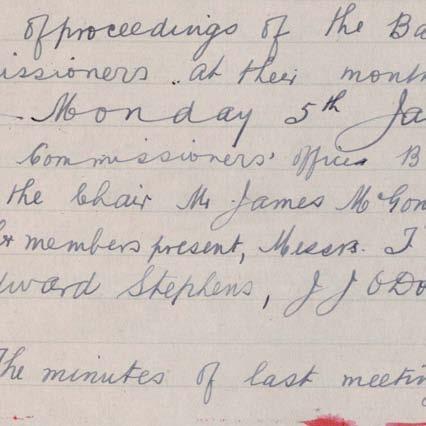 of proceedings of the Ba
issioners at their month
Monday 5th Ja
Commissioners' Office B
the Chair Mr James McGon
members present, Messrs. T
dward Stephens, J J O'Do
The minutes of last meeting